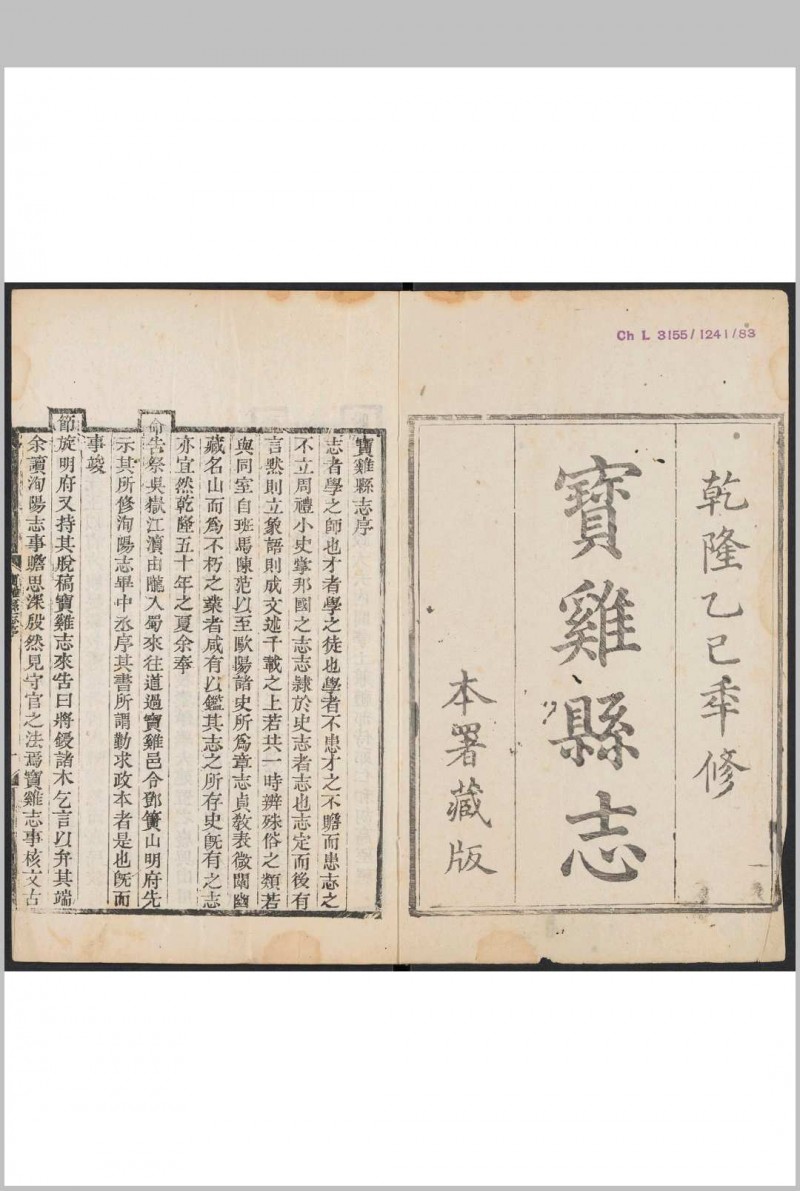 Ch L 3155/1241/83
乾隆乙巳秊修
寶雞縣志
本署藏版
寶雞縣志序
志者學之師也才者學之徒也學者不患才之不贍而患志之
不立周禮小史掌邦國之志志隷於史志者志也志定而後有
言黙則立象語則成文述千載之上若共一時辨殊俗之類若
與同室自班馬陳范以至歐陽諸史所爲章志貞敎表微闡幽
藏名山而爲不朽之業者咸有以鑑其志之所存史旣有之志
亦宜然乾隆五十年之夏余奉
命告祭吳嶽江瀆由隴入蜀來往道過寶雞邑令鄧簀山明府先
示其所修洵陽志畢中丞序其書所謂勤求政本者是也旣而
事竣
節旋明府又持其脫稿寶雞志來告曰將鋟諸木乞言以弁其端
余讀洵陽志事贍思深殷然見守官之法焉寶雞志事核文古